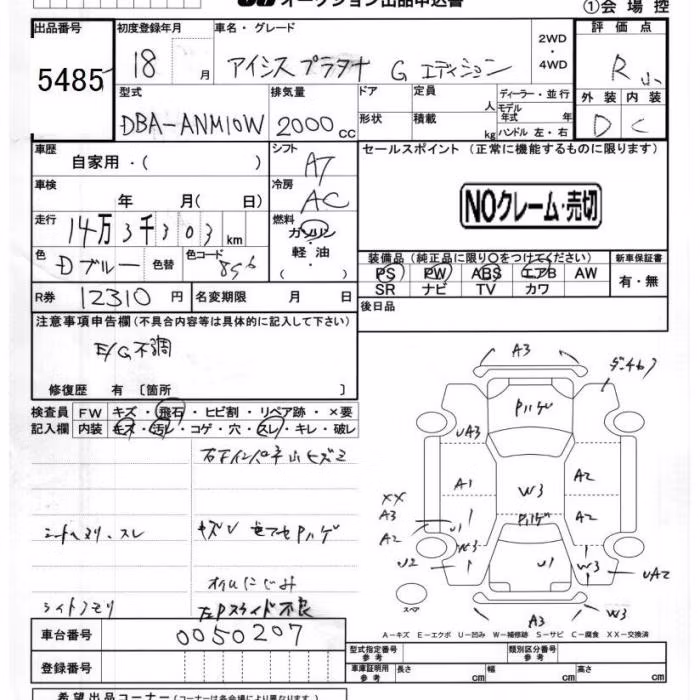 オークション出品申込書
①会場控
出品番号
5485
初度登録年月
18 月
車名・グレード
アイシス プラタナ G エディション
2WD
・
4WD
評価点
R
外装 内装
D C
型式
DBA-ANM10W
排気量
2000 cc
ドア
形状
定員
人
積載
kg
ディーラー・並行
モデル年式 年
ハンドル 左・右
車歴
自家用・( )
シフト
AT
セールスポイント (正常に機能するものに限ります)
NOクレーム・売切
車検
年 月( 日)
冷房
AC
走行
14万3千303 km
燃料
ガソリン
軽油
・( )
色
Dブルー
色替
色コード
8S6
装備品 (純正品に限り○をつけてください)
PS PW ABS エアB AW
SR ナビ TV カワ
新車保証書
有・無
R券 12310 円
名変期限 月 日
後日品
注意事項申告欄 (不具合内容等は具体的に記入して下さい)
E/G不調
修復歴 有 〔箇所 〕
検査員 FW キズ・飛石・ヒビ割・リペア跡・×要
記入欄 内装 キズ・汚レ・コゲ・穴・スレ・キレ・破レ
オイルにじみ
左Pスライド不良
車台番号
0050207
登録番号
A3
Pハゲ
UA3
A1
W3
A2
Pハゲ
A2
XX
A3
A2
U1
W3
U2
U1
W3
UA2
スペア
A3
W3
A-キズ E-エクボ U-凹み W-補修跡 S-サビ C-腐食 XX-交換済
型式指定番号
参考
類別区分番号
参考
車庫証明用
参考
長さ cm
幅 cm
高さ cm
希望出品コーナー (コーナーは各会場により異なります)